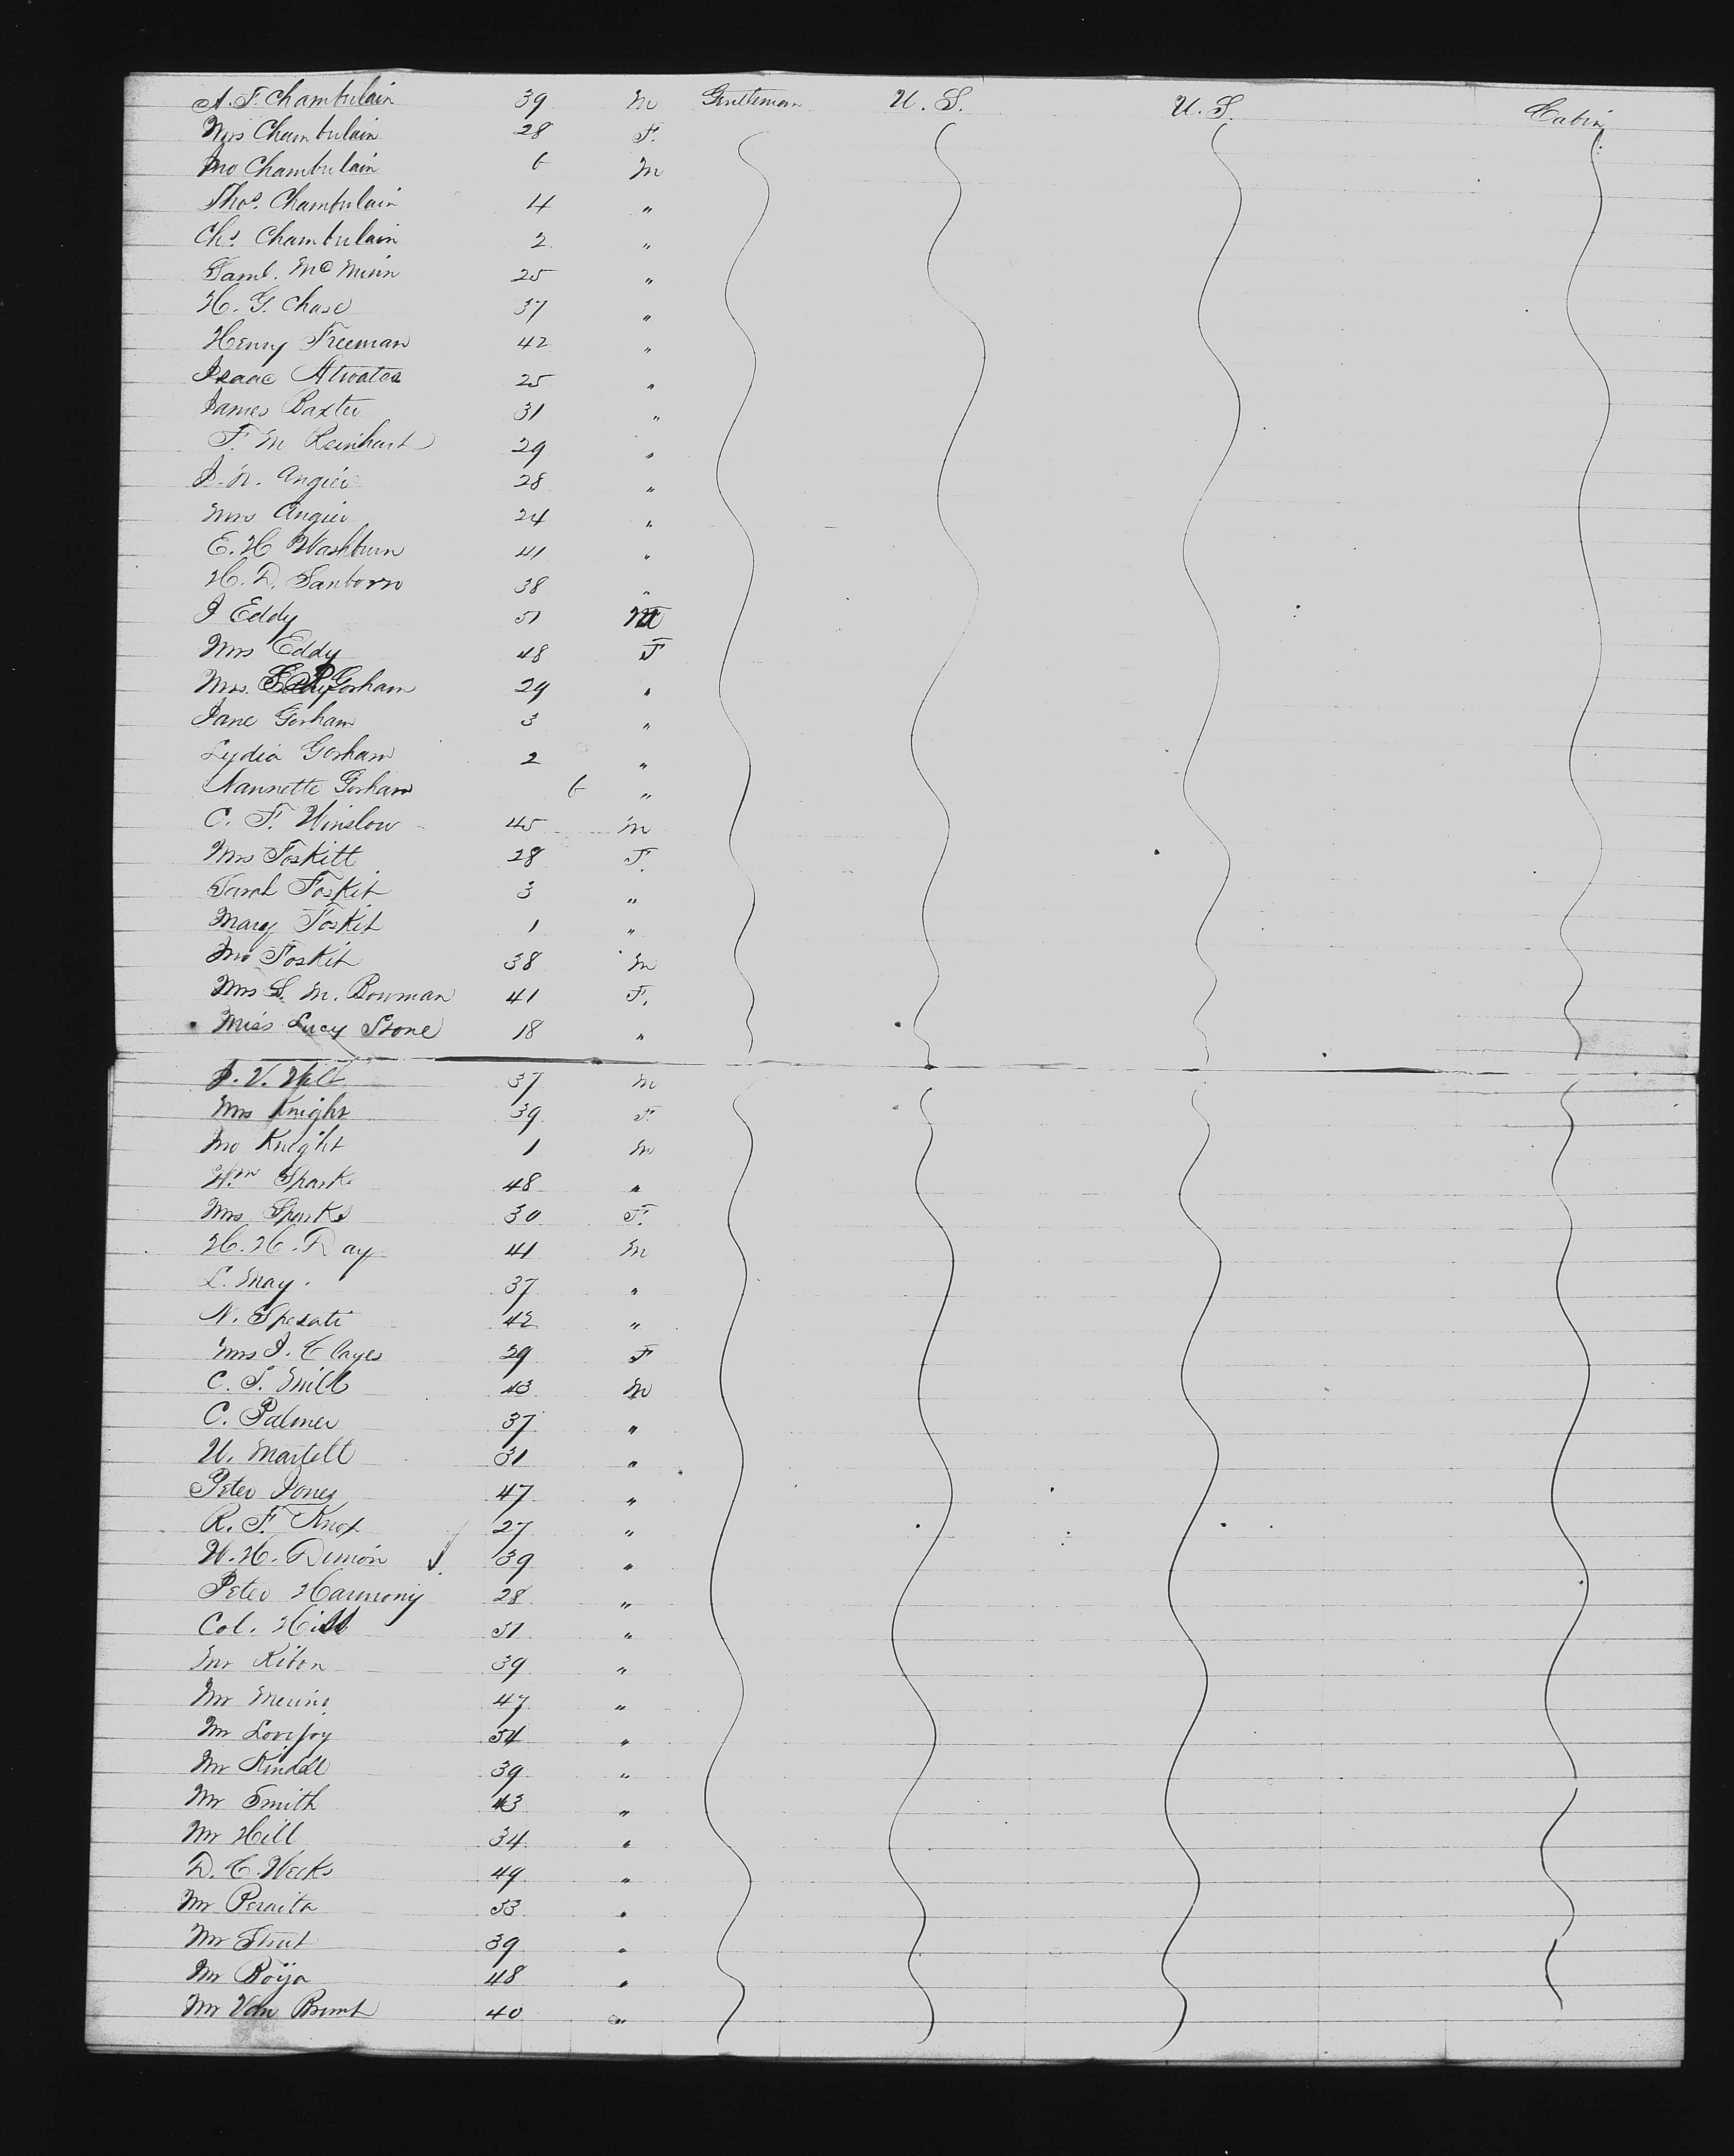 A. F. Chamberlain 39 M Gentleman U. S. U. S. Cabin
Mrs Chamberlain 28 F.
Jno Chamberlain 6 M
Thos. Chamberlain 4 "
Chs. Chamberlain 2 "
Saml. Mc Minn 25 "
H. G. Chase 37 "
Henry Freeman 42 "
Isaac Atwater 25 "
James Baxter 31 "
F. M Reinhart 29 "
J. N. Angier 28 "
Mrs Angier 24 "
E. H Washburn 41 "
H. D. Sanborn 38 "
J Eddy 51 M
Mrs Eddy 48 F
Mrs. Gorham 29 "
Jane Gorham 3 "
Lydia Gorham 2 "
Nannette Gorham 6 "
C. F. Winslow 45 M
Mrs Foskitt 28 F.
Sarah Foskit 3 "
Mary Foskit 1 "
Jno Foskit 38 M
Mrs S. M. Bowman 41 F.
Miss Lucy Stone 18 "
J. V. 37 M
Mrs Knight 39 F.
Jno Knight 1 M
Wm Sparks 48 "
Mrs Sparks 30 F.
H. H. Day 41 M
L. May. 37 "
N. Sperati 42 "
Mrs J. Clayes 29 F
C. S. 43 M
C. Palmer 37 "
U. Martell 31 "
Peter Jones 47 "
R. F. Knox 27 "
W. H. Dimon 39 "
Peter Harmony 28 "
Col. Hill 51 "
Mr Kibon 39 "
Mr 47 "
Mr Lovejoy 54 "
Mr Kindell 39 "
Mr Smith 43 "
Mr Hill 34 "
D. C. Weeks 49 "
Mr Peraita 53 "
Mr 39 "
Mr Roija 48 "
Mr Van Brunt 40 "